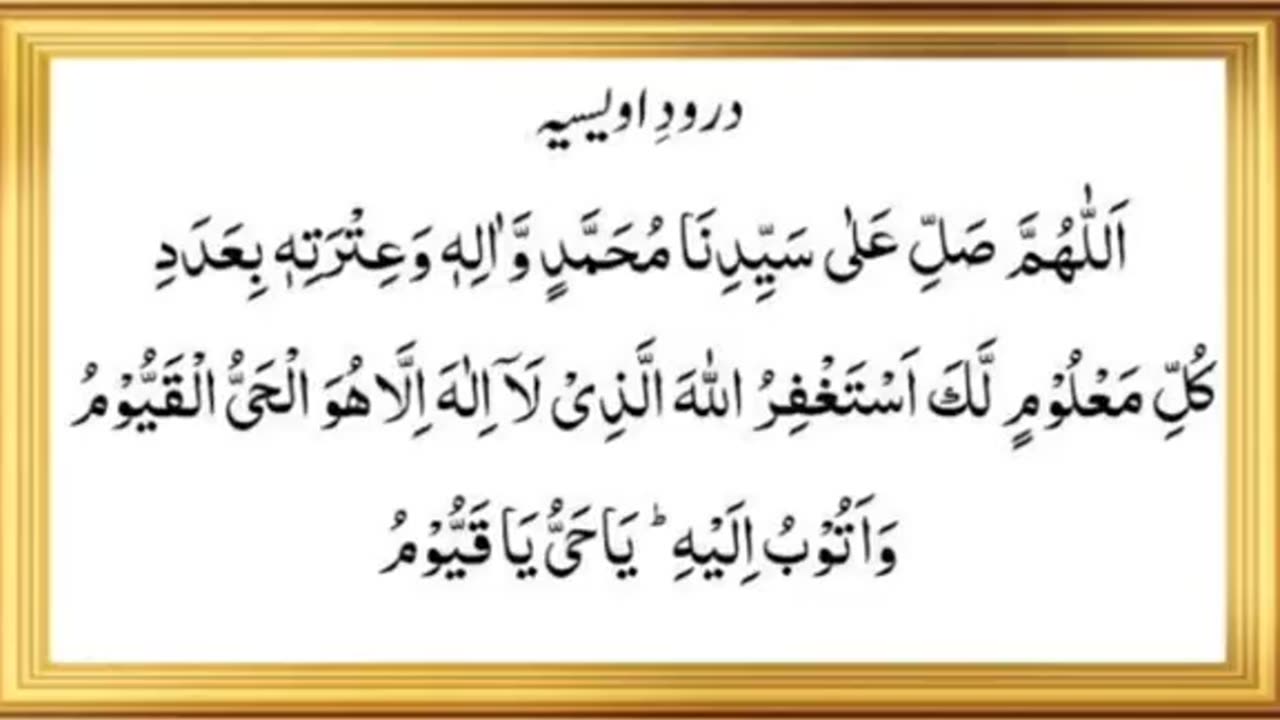 درودِ اویسیہ
اَللّٰهُمَّ صَلِّ عَلٰی سَیِّدِنَا مُحَمَّدٍ وَّاٰلِهٖ وَعِتْرَتِهٖ بِعَدَدِ
كُلِّ مَعْلُوْمٍ لَّكَ اَسْتَغْفِرُ اللّٰهَ الَّذِیْ لَآ اِلٰهَ اِلَّا هُوَ الْحَیُّ الْقَیُّوْمُ
وَاَتُوْبُ اِلَیْهِ ؕ یَا حَیُّ یَا قَیُّوْمُ